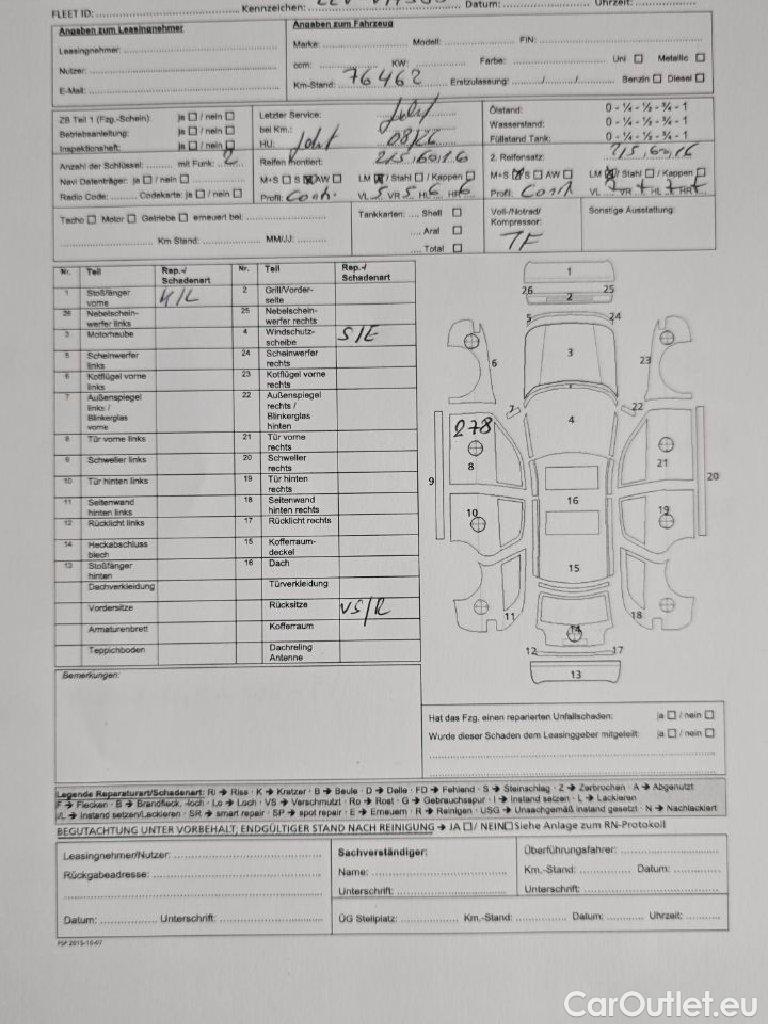 FLEET ID: Kennzeichen: Datum: Uhrzeit:
Angaben zum Leasingnehmer
Leasingnehmer:
Nutzer:
E-Mail:
Angaben zum Fahrzeug
Marke: Modell: FIN:
ccm: KW: Farbe: Uni Metallic
Km-Stand: 76462 Erstzulassung: / / Benzin Diesel
ZB Teil 1 (Fzg.-Schein): ja / nein
Betriebsanleitung: ja / nein
Inspektionsheft: ja / nein
Anzahl der Schlüssel: mit Funk: 2
Navi Datenträger: ja / nein
Radio Code: Codekarte: ja / nein
Letzter Service:
bei Km.:
HU: 08/26
Reifen montiert: 215.60.16
M+S S AW LM / Stahl / Kappen
Profil: Conti. VL 5 VR 5 HL 6 HR 6
Ölstand: 0 - ¼ - ½ - ¾ - 1
Wasserstand: 0 - ¼ - ½ - ¾ - 1
Füllstand Tank: 0 - ¼ - ½ - ¾ - 1
2. Reifensatz: 215.60.16
M+S S AW LM / Stahl / Kappen
Profil: VL 7 VR 7 HL 7 HR 7
Tacho Motor Getriebe erneuert bei:
Km Stand: MM/JJ:
Tankkarten: Shell
Aral
Total
Voll-/Notrad/
Kompressor:
TF
Sonstige Ausstattung:
Nr. Teil Rep.-/ Schadenart Nr. Teil Rep.-/ Schadenart
1 Stoßfänger vorne 2 Grill/Vorder- seite
26 Nebelschein- werfer links 25 Nebelschein- werfer rechts
3 Motorhaube 4 Windschutz- scheibe S/E
5 Scheinwerfer links 24 Scheinwerfer rechts
6 Kotflügel vorne links 23 Kotflügel vorne rechts
7 Außenspiegel links / Blinkerglas vorne 22 Außenspiegel rechts / Blinkerglas hinten
8 Tür vorne links 21 Tür vorne rechts
9 Schweller links 20 Schweller rechts
10 Tür hinten links 19 Tür hinten rechts
11 Seitenwand hinten links 18 Seitenwand hinten rechts
12 Rücklicht links 17 Rücklicht rechts
14 Heckabschluss blech 15 Kofferraum- deckel
13 Stoßfänger hinten 16 Dach
Dachverkleidung Türverkleidung
Vordersitze Rücksitze VS/R
Armaturenbrett Kofferraum
Teppichboden Dachreling Antenne
1
26 25
2
5 24
3
6 23
7 22
4
278
8 21
9 20
16
10 19
15
11 18
14
12 17
13
Bemerkungen:
Hat das Fzg. einen reparierten Unfallschaden: ja / nein
Wurde dieser Schaden dem Leasinggeber mitgeteilt: ja / nein
Legende Reparaturart/Schadenart: Ri → Riss · K → Kratzer · B → Beule · D → Delle · FD → Fehlend · S → Steinschlag · Z → Zerbrochen · A → Abgenutzt
F → Flecken · B → Brandfleck, -loch · Lo → Loch · VS → Verschmutzt · Ro → Rost · G → Gebrauchsspur · I → Instand setzen · L → Lackieren
I/L → Instand setzen/Lackieren · SR → smart repair · SP → spot repair · E → Erneuern · R → Reinigen · USG → Unsachgemäß instand gesetzt · N → Nachlackiert
BEGUTACHTUNG UNTER VORBEHALT, ENDGÜLTIGER STAND NACH REINIGUNG → JA / NEIN Siehe Anlage zum RN-Protokoll
Leasingnehmer/Nutzer:
Rückgabeadresse:
Datum: Unterschrift:
Sachverständiger:
Name:
Unterschrift:
Überführungsfahrer:
Km.-Stand: Datum:
Unterschrift:
ÜG Stellplatz: Km.-Stand: Datum: Uhrzeit:
CarOutlet.eu